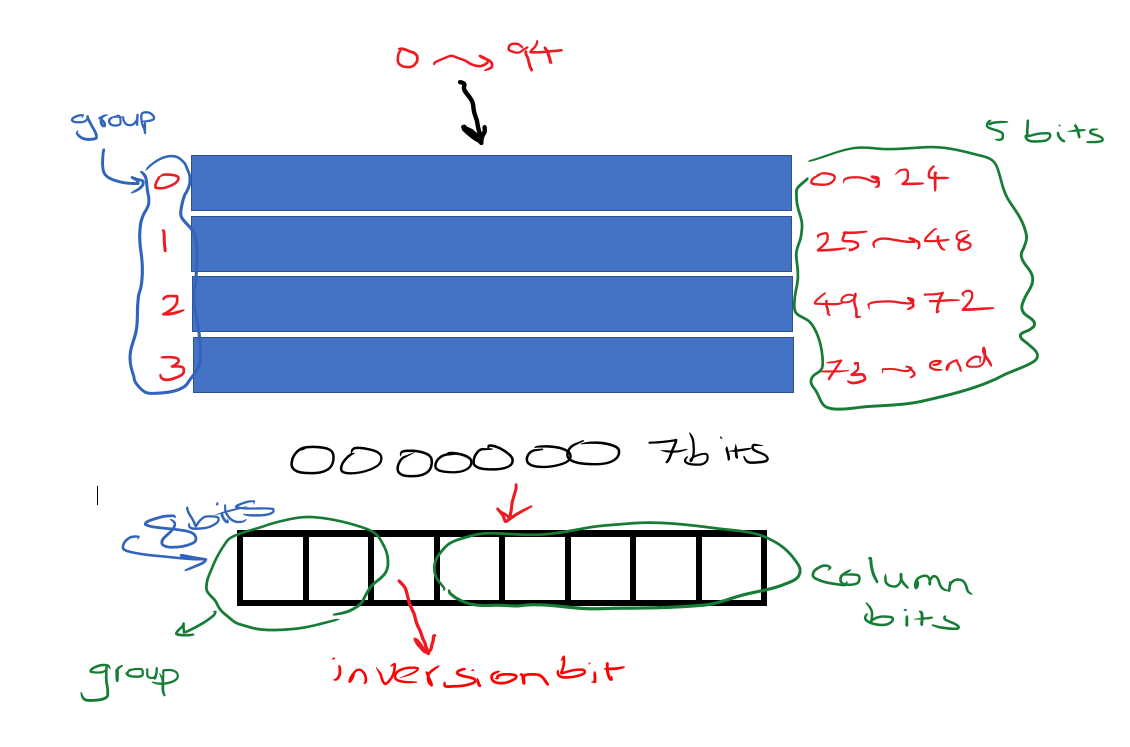 0 → 94
group
5 bits
0 → 24
0
1
25 → 48
2
49 → 72
3
73 → end
0000000 7bits
8bits
column
bits
group
inversionbit